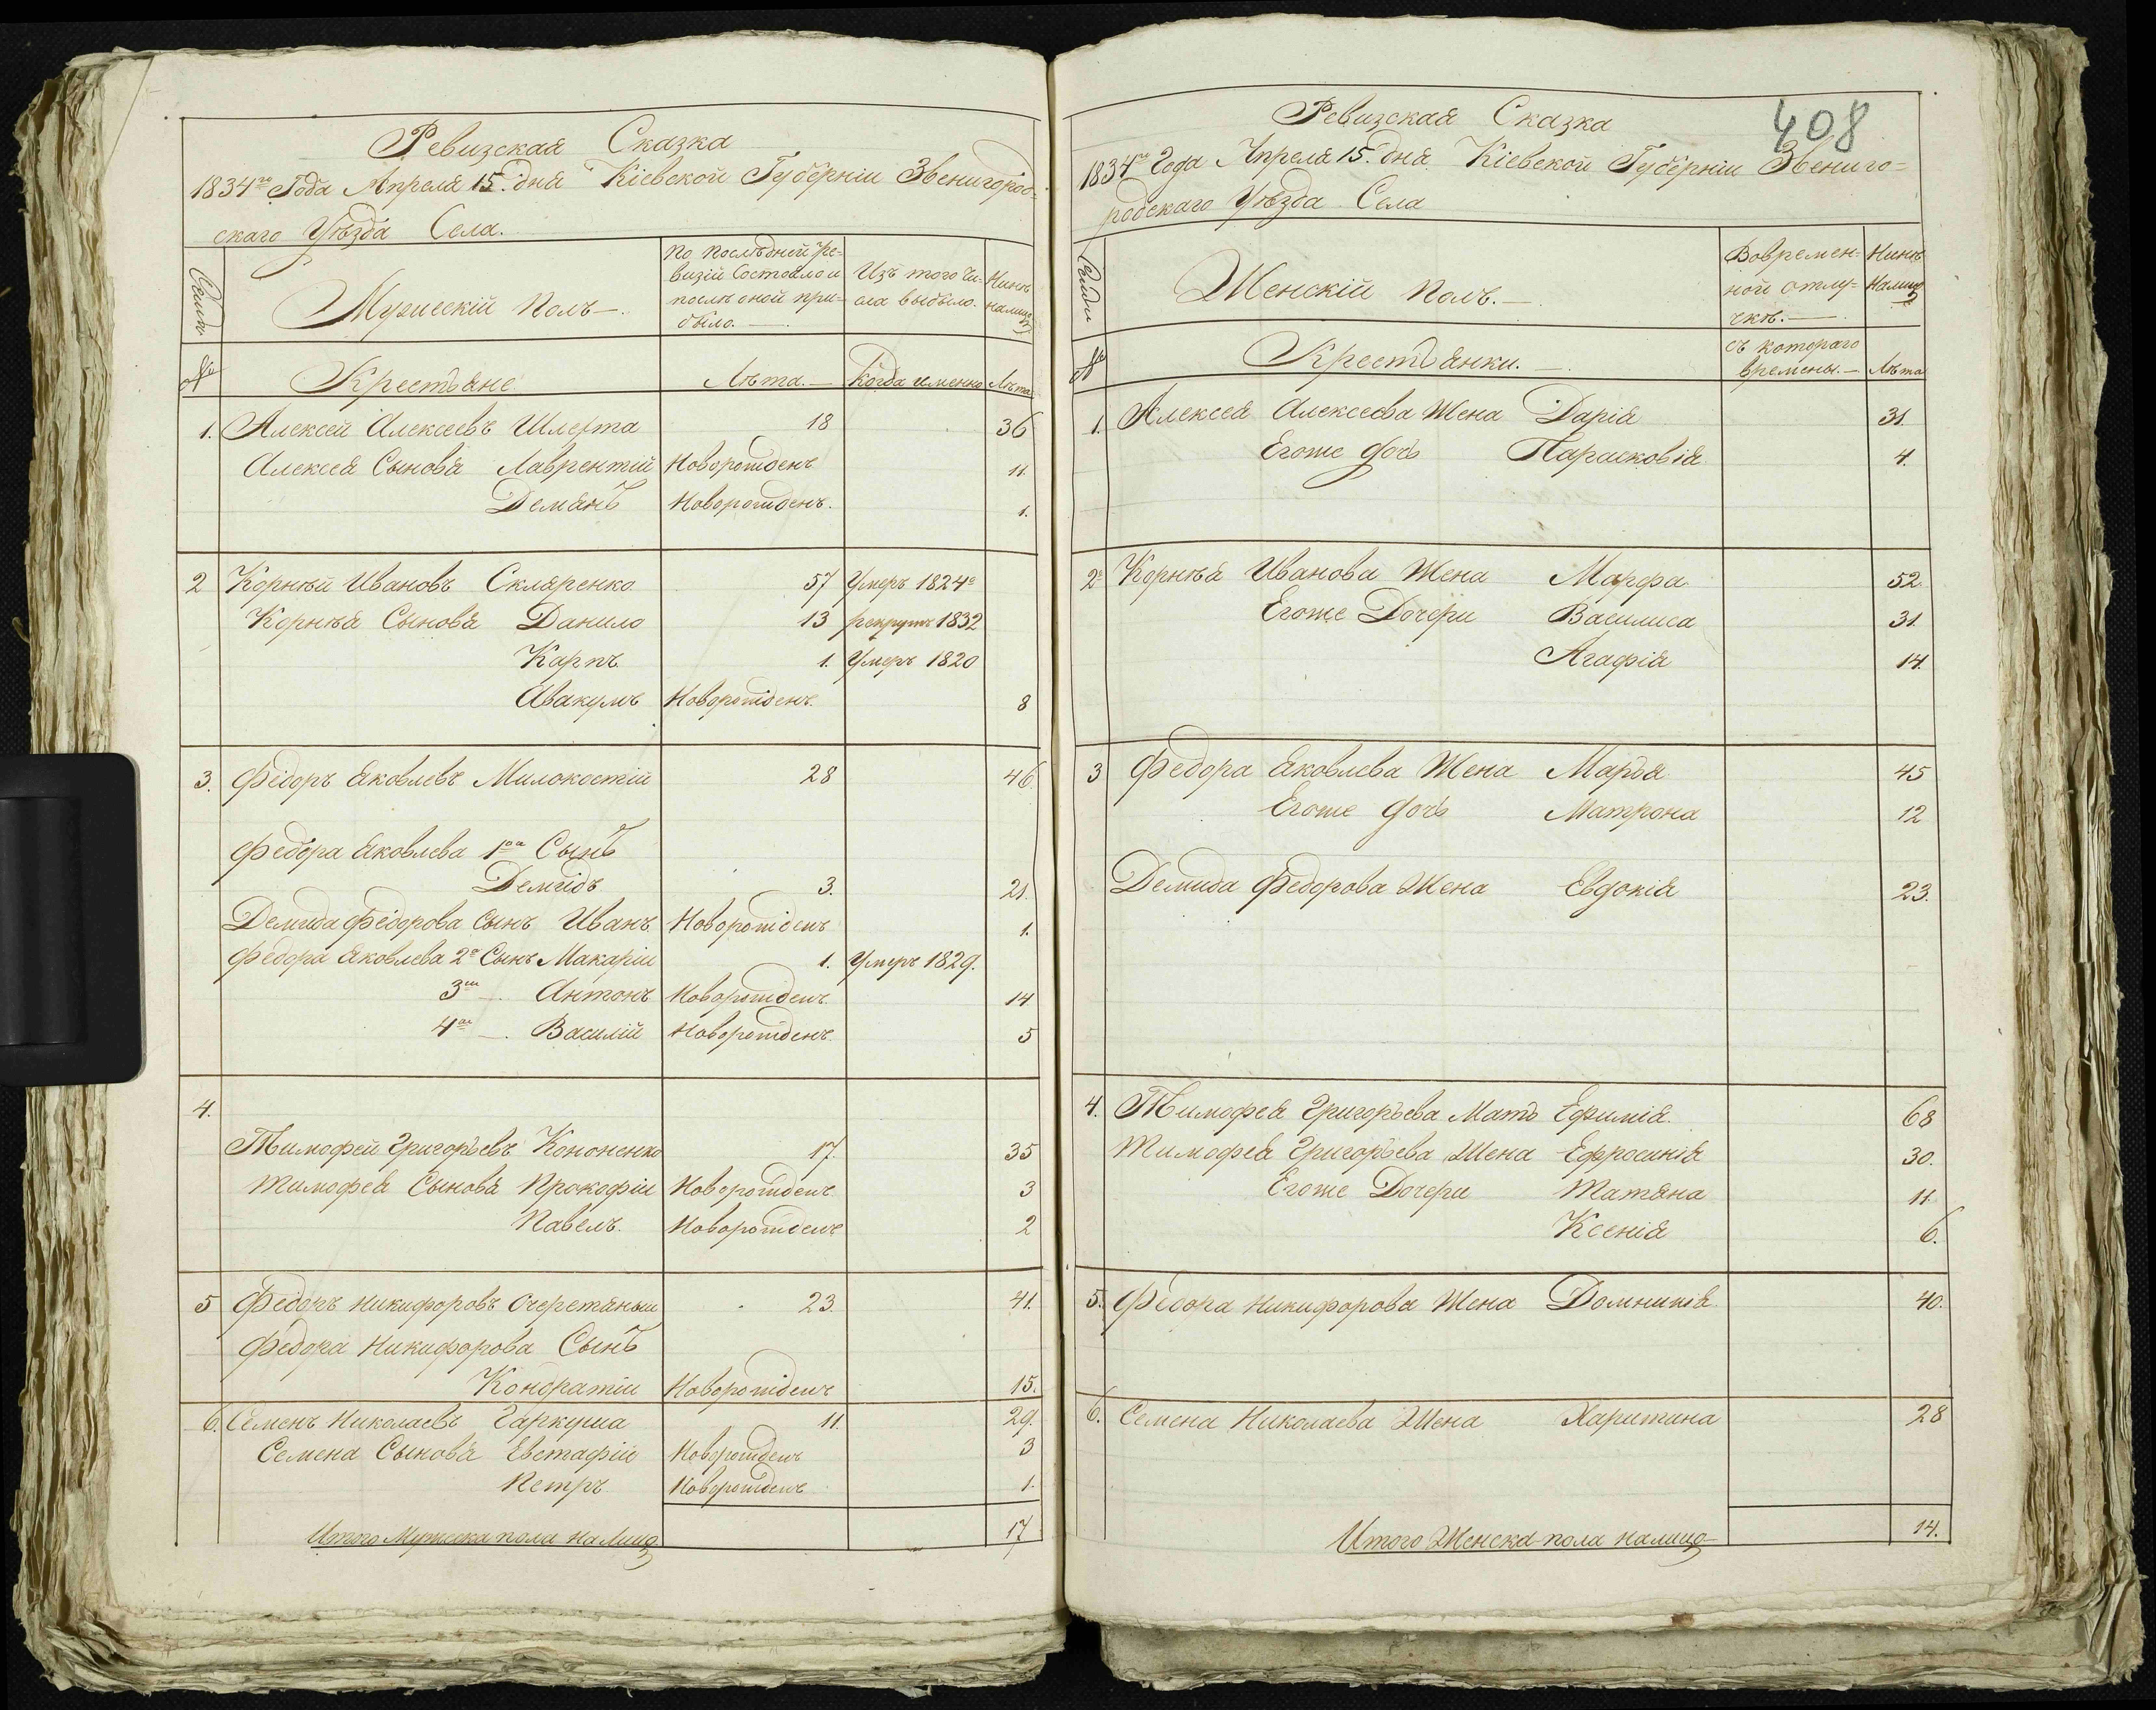 Ревизская Сказка
1834го Года Апреля 15. дня Кіевской Губерніи Звенигород-
скаго Уѣзда Села.
Семьи.
Мужескій Полъ —.
По Послѣдней Ре-
визіи Состояло и
послѣ оной при-
было. —.
Изъ того Чи-
сла выбыло.
Нинѣ
налицо
№
Крестьяне
Лѣта. —
Когда именно
Лѣта
1. Алексей Алексеевъ Шлехта 18 36
Алексея Сыновья Лаврентій Новорожденъ 11.
Демянъ Новорожденъ. 1.
2 Корнѣй Ивановъ Скляренко 57 Умеръ 1824о
Корнѣя Сыновья Данило 13 рекрутъ 1832
Карпъ 1. Умеръ 1820
Авакумъ Новорожденъ. 8
3. Федоръ Яковлевъ Милокостій 28 46.
Федора Яковлева 1оа Сынъ
Демидъ 3. 21.
Демида Федорова Сынъ Иванъ Новорожденъ 1.
Федора Яковлева 2о Сынъ Макаріи 1. Умеръ 1829.
3ій —. Антонъ Новорожденъ 14
4ой —. Василій Новорожденъ 5
4.
Тимофей Григорьевъ Кононенко 17. 35
Тимофея Сыновья Прокофіи Новорожденъ 3
Павелъ. Новорожденъ 2
5 Федоръ Никифоровъ Очеретяныи 23. 41.
Федора Никифорова Сынъ
Кондратіи Новорожденъ 15.
6. Семенъ Николаевъ Гаркуша 11. 29.
Семена Сыновья Евстафіи Новорожденъ 3
Петръ Новорожденъ 1.
Итого Мужеска пола на Лицо 17
408
Ревизская Сказка
1834го Года Апреля 15. дня Кіевской Губерніи Звениго-
родскаго Уѣзда Села
Семьи
Женскій Полъ. —.
Вовремен-
ной отлу-
чкѣ. —.
Нинѣ
Налицо
№
Крестьянки. —.
съ котораго
времены. —
Лѣта
1. Алексея Алексеева Жена Дарія 31.
Егоже дочь Парасковія 4.
2. Корнѣя Иванова Жена Марфа 52.
Егоже Дочери Василиса 31.
Агафія 14.
3 Федора Яковлева Жена Марья 45
Егоже дочь Матрона 12
Демида Федорова Жена Евдокія 23.
4. Тимофея Григорьева Мать Ефимія. 68
Тимофея Григорьева Жена Ефросинія 30.
Егоже Дочери Татяна 11.
Ксенія 6.
5. Федора Никифорова Жена Домникія 40.
6. Семена Николаева Жена Харитина 28
Итого Женска пола налицо 14.